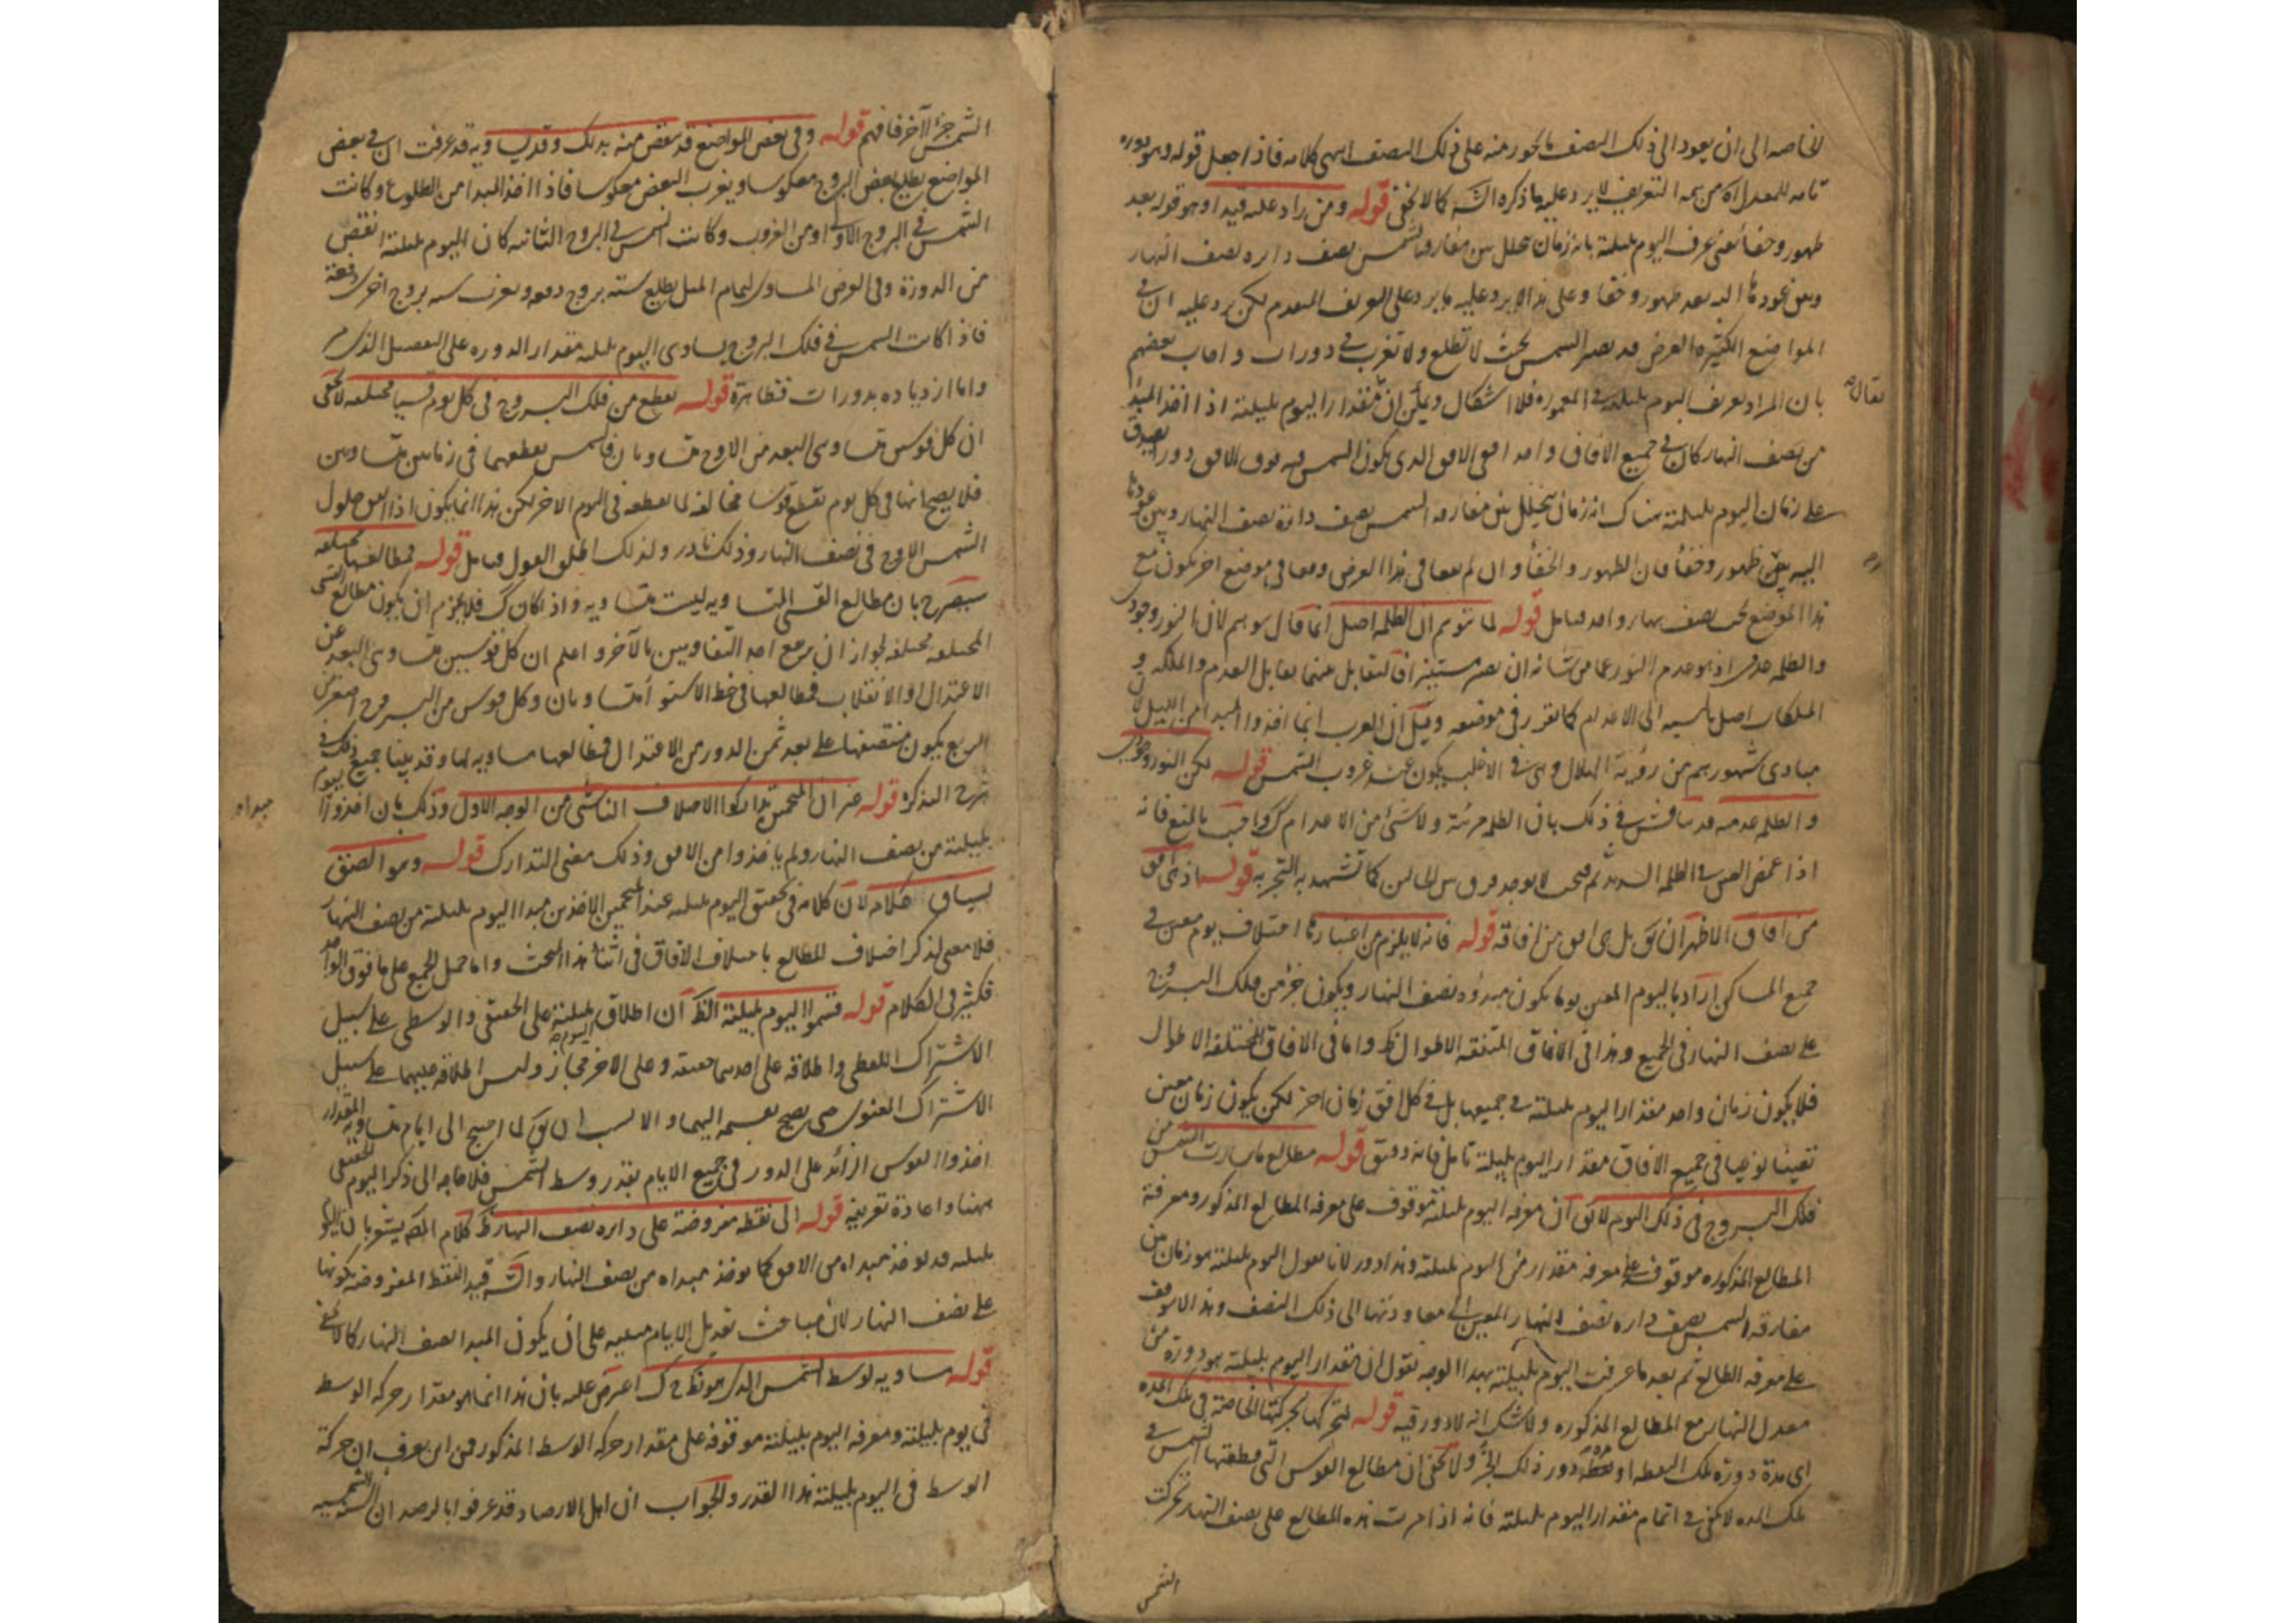 الخاصه الى ان يعود الى ذلك النصف بالحور منه على ذلك النصف انتهى كلامه فاذا جعل قوله وهو دوره
تامه للمعدل اه من تتمه التعريف لا يرد عليه ما ذكره الش كما لا يخفى قوله ومن زاد عليه قيدا وهو قوله بعد
ظهور وخفا يعنى عرف اليوم بليلته بانه زمان تخلل بين مفارقه الشمس نصف دايره نصف النهار
وبين عودها اليه بعد ظهور وخفا وعلى هذا لا يرد عليه ما يرد على التعريف المتقدم لكن يرد عليه ان فى
المواضع الكثيره العرض قد يصير الشمس بحيث لا تطلع ولا تغرب فى دورات واجاب بعضهم
بان المراد تعريف اليوم بليلته فى المعموره فلا اشكال ويمكن ان يقال مقدار اليوم بليلته اذا اخذ المبدا
من نصف النهار كان فى جميع الافاق واحد افعى الافق الذى يكون الشمس فيه فوق الافق دورا يصدق
على زمان اليوم بليلته هناك انه زمان يتخلل بين مفارقه الشمس نصف دائرة نصف النهار وبين عودها
اليه بعد ظهور وخفاء فان الظهور والخفاء وان لم يقعا فى هذا العرض وقعا فى موضع اخر يكون مع
هذا الموضع تحت نصف نهار واحد فتامل قوله لما توهم ان الظلمه اصل انما قال توهم لان النور وجودى
والظلمه عدمى اذ هو عدم النور عما من شانه ان يصير مستنيرا فالتقابل بينهما تقابل العدم والملكه و
الملكات اصل بالنسبه الى الاعدام كما تقرر فى موضعه وقيل ان العرب انما اخذوا المبدا من الليل لان
مبادى شهورهم من رؤية الهلال وهى فى الاغلب يكون عند غروب الشمس قوله لكن النور وجودى
والظلمه عدميه قد يناقش فى ذلك بان الظلمه مرئية ولا شئ من الاعدام كك واجيب بالمنع فانه
اذا غمض العين فى الظلمه الشديده ثم فتحت لا يوجد فرق بين الحالين كما تشهد به التجربه قوله اذ اى افق
من افاق الاظهر ان يق بل اى افق من افاقه قوله فانه لا يلزم من اعتبارها اختلاف يوم معين فى
جميع المساكن اراد باليوم المعين يوما يكون مبدؤه نصف النهار ويكون جزء من فلك البروج
على نصف النهار فى الجميع وهذا فى الافاق المتفقه الاطوال ظ واما فى الافاق المختلفه الاطوال
فلا يكون زمان واحد مقدار اليوم بليلته فى جميعها بل فى كل افق زمان اخر لكن يكون زمان معين
تعينا نوعيا فى جميع الافاق مقدار اليوم بليلته تامل فانه دقيق قوله مطالع ما سارت الشمس من
فلك البروج فى ذلك اليوم لا يق ان معرفه اليوم بليلته موقوف على معرفه المطالع المذكور ومعرفة
المطالع المذكوره موقوف على معرفه مقدار من اليوم بليلته وهذا دور لانا نقول اليوم بليلته هو زمان من
مفارقه الشمس نصف دايره نصف النهار المعين الى معاودتها الى ذلك النصف وهذا لا يتوقف
على معرفه الطالع ثم بعد ما عرفت اليوم بليلته بهذا الوجه نقول ان مقدار اليوم بليلته هو دورة من
معدل النهار مع المطالع المذكوره ولا شك انه لا دور فيه قوله لتحركها بحركتها الخاصه فى تلك المده
اى مدة دورة تلك النقطه او نقطة دور ذلك الجزء ولا يخفى ان مطالع القوس التى قطعتها الشمس فى
تلك المده لا يكفى فى اتمام مقدار اليوم بليلته فانه اذا مرت هذه المطالع على نصف النهار تحركت
الشمس
يقال
الشمس جزءا آخر فافهم قوله وفى بعض المواضع قد ينقص منه بذلك وقد يساويه قد عرفت ان فى بعض
المواضع يطلع بعض البروج معكوسا ويغرب البعض معكوسا فاذا اخذ المبدا من الطلوع وكانت
الشمس فى البروج الاولى او من الغروب وكانت الشمس فى البروج الثانيه كان اليوم بليلته انقص
من الدورة وفى العرض المساوى لتمام الميل يطلع سته بروج دفعه ويغرب سته بروج اخرى دفعة
فاذا كانت الشمس فى فلك البروج يساوى اليوم بليلته مقدار الدوره على التفصيل الذى مر
واما ازدياده بدورات فظاهرة قوله تقطع من فلك البروج فى كل يوم قسيا مختلفه لا يخفى
ان كل قوسين متساوى البعد من الاوج متساويان فالشمس يقطعهما فى زمانين متساويين
فلا يصح انها فى كل يوم تقطع قوسا مخالفه لما يقطعه فى اليوم الاخر لكن هذا انما يكون اذا اتفق حلول
الشمس الاوج فى نصف النهار وذلك نادر ولذلك اطلق القول فتامل قوله فمطالعها مختلفه
سيصرح بان مطالع القسى المتساويه ليست متساويه واذا كان كك فلا يجزم ان يكون مطالع القسى
المختلفه مختلفه لجواز ان يرجع احد التفاوتين بالآخر واعلم ان كل قوسين متساوى البعد عن
الاعتدال او الانقلاب فمطالعها فى خط الاستوا متساويان وكل قوس من البروج اصغر من
الربع يكون منتصفها على بعد ثمن الدور من الاعتدال فمطالعها مساويه لها وقد بينا جميع ذلك فى
شرح التذكره قوله غير ان المنجمين تداركوا الاختلاف الناشى من الوجه الاول وذلك بان اخذوا اليوم
بليلته من نصف النهار ولم ياخذوا من الافق وذلك معنى التدارك قوله وهو الصق
لسياق كلامه لان كلامه فى تحقيق اليوم بليلته عند المنجمين الاخذين مبدا اليوم بليلته من نصف النهار
فلا معنى لذكر اختلاف المطالع باختلاف الافاق فى اثناء هذا المبحث واما حمل الجمع على ما فوق الواحد
فكثير فى الكلام قوله قسموا اليوم بليلته الظ ان اطلاق اليوم بليلته على الحقيقى والوسطى على سبيل
الاشتراك اللفظى واطلاقه على احدهما حقيقه وعلى الاخر مجاز وليس اطلاقه عليهما على سبيل
الاشتراك المعنوى حتى يصح تقسيمه اليهما والانسب ان يق لما احتيج الى ايام متساوية المقدار
اخذوا القوس الزائد على الدور فى جميع الايام بقدر وسط الشمس فلا حاجه الى ذكر اليوم الحقيقى
ههنا واعادة تعريفه قوله الى نقطه مفروضة على دايره نصف النهار ظ كلام المص يشعر بان اليوم
بليلته قد يوخذ مبداه من الافق كما يوخذ مبداه من نصف النهار والش قيد النقط المفروضه بكونها
على نصف النهار لان مباحث تعديل الايام مبنيه على ان يكون المبدا نصف النهار كما لا يخفى
قوله مساويه لوسط الشمس الذى هو نط ح ك اعترض عليه بان هذا انما هو مقدار حركه الوسط
فى يوم بليلته ومعرفه اليوم بليلته موقوفه على مقدار حركه الوسط المذكور فمن اين يعرف ان حركة
الوسط فى اليوم بليلته هذا القدر والجواب ان اهل الارصاد قد عرفوا بالرصد ان السنة الشمسيه
مبداه